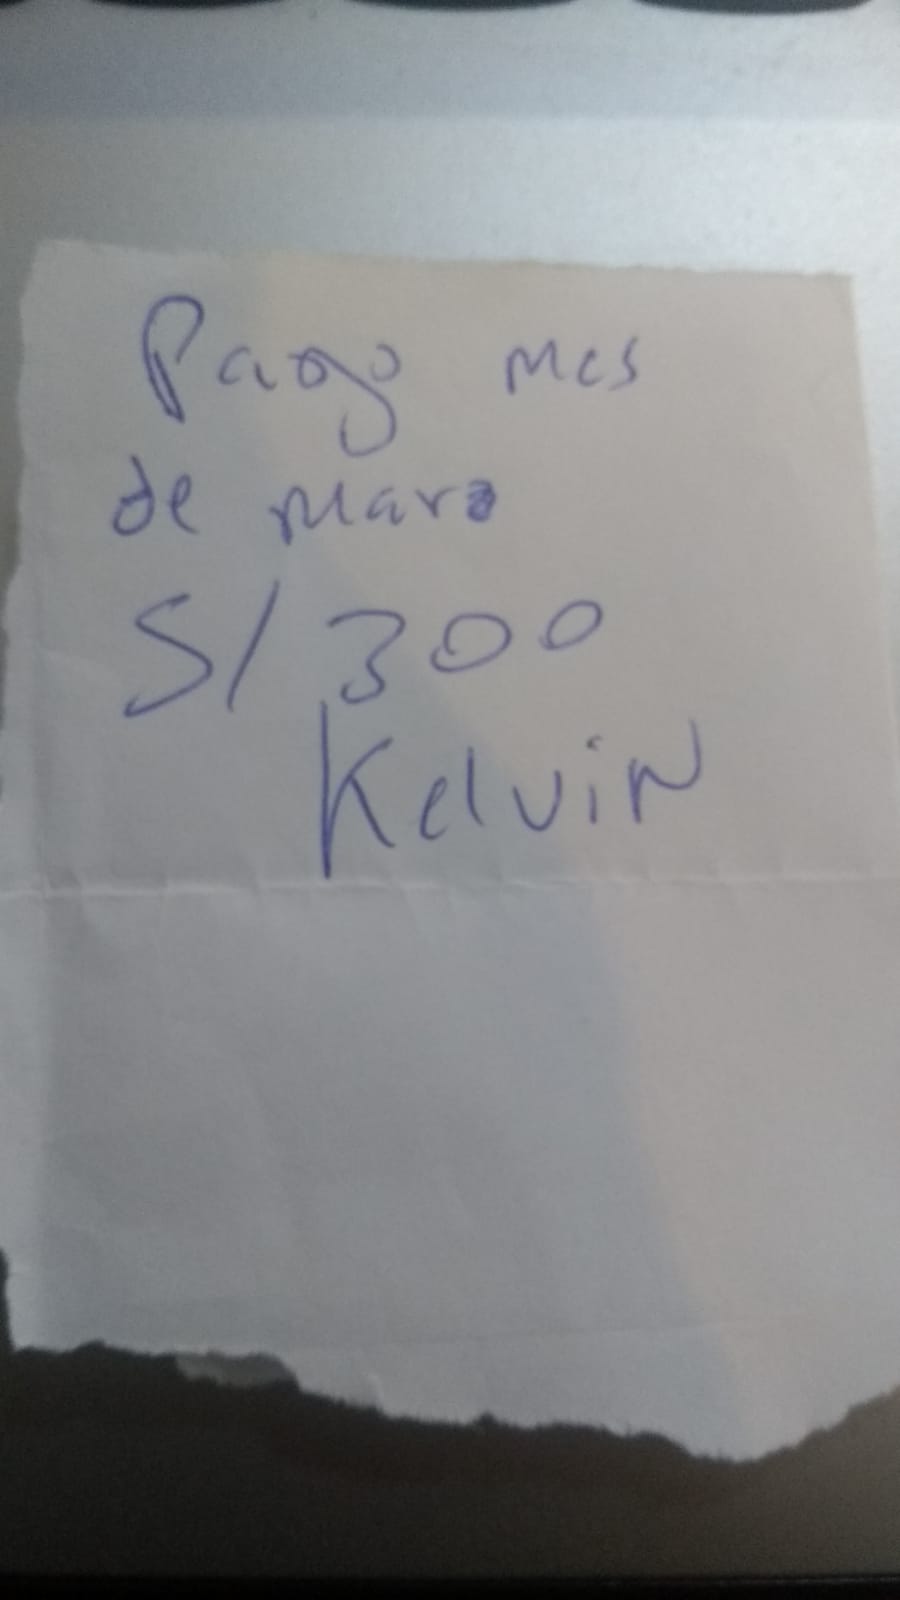 Pago mes
de marzo
S/ 300
Kelvin